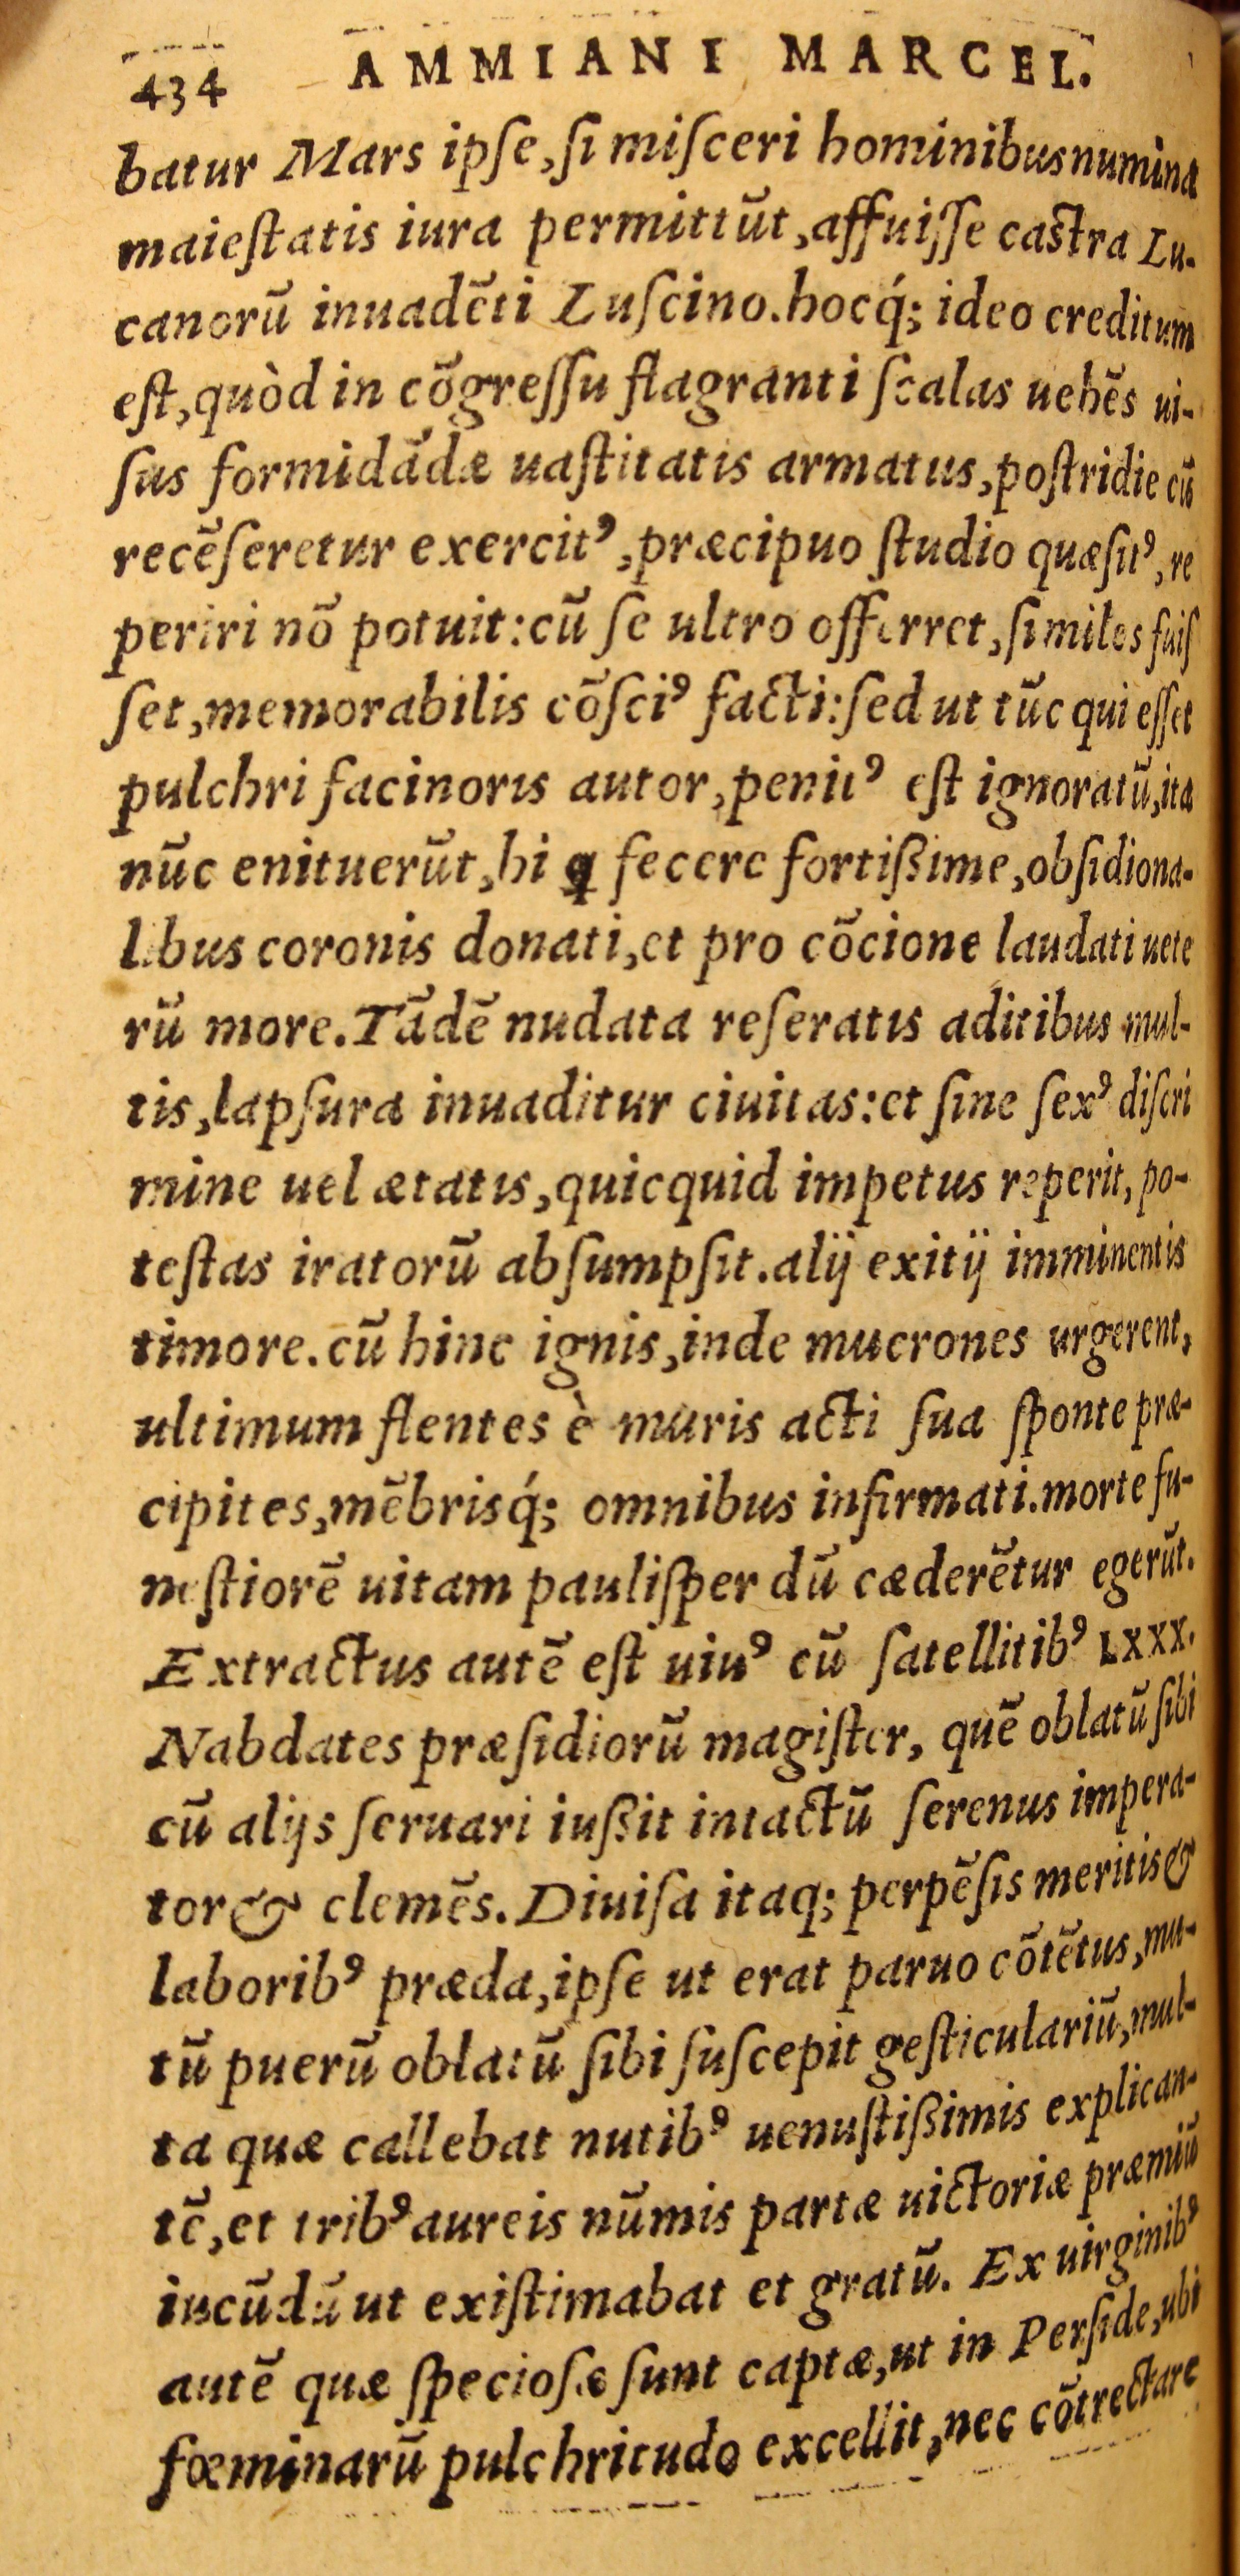 434 AMMIANI MARCEL.
batur Mars ipſe, ſi miſceri hominibus numina
maieſtatis iura permittūt, affuiſſe caſtra Lu-
canorū inuadēti Luſcino. hocq́; ideo creditum
eſt, quòd in cōgreſſu flagranti ſcalas uehēs ui-
ſus formidādæ uaſtitatis armatus, poſtridie cū
recēſeretur exercitꝰ, præcipuo ſtudio quæſitꝰ, re
periri nō potuit: cū ſe ultro offerret, ſi miles fuiſ
ſet, memorabilis cōſciꝰ facti: ſed ut tūc qui eſſet
pulchri facinoris autor, penitꝰ eſt ignoratū, ita
nūc enituerūt, hi ꝗ fecere fortißime, obſidiona-
libus coronis donati, et pro cōcione laudati uete
rū more. Tādē nudata reſeratis aditibus mul-
tis, lapſura inuaditur ciuitas: et ſine ſexꝰ diſcri
mine uel ætatis, quicquid impetus reperit, po-
teſtas iratorū abſumpſit. alij exitij imminentis
timore. cū hinc ignis, inde mucrones urgerent,
ultimum flentes è muris acti ſua ſponte præ-
cipites, mēbrisq́; omnibus infirmati. morte fu-
neſtiorē uitam pauliſper dū cæderētur egerūt.
Extractus autē eſt uiuꝰ cū ſatellitibꝰ LXXX.
Nabdates præſidiorū magiſter, quē oblatū ſibi
cū alijs ſeruari iußit intactū ſerenus impera-
tor & clemēs. Diuiſa itaq; perpēſis meritis &
laboribꝰ præda, ipſe ut erat paruo cōtētus, mu-
tū puerū oblatū ſibi ſuſcepit geſticulariū, mul-
ta quæ callebat nutibꝰ uenuſtißimis explican-
tē, et tribꝰ aureis nūmis partæ uictoriæ præmiū
iucūdū ut exiſtimabat et gratū. Ex uirginibꝰ
autē quæ ſpecioſæ ſunt captæ, ut in Perſide, ubi
fœminarū pulchritudo excellit, nec cōtrectare